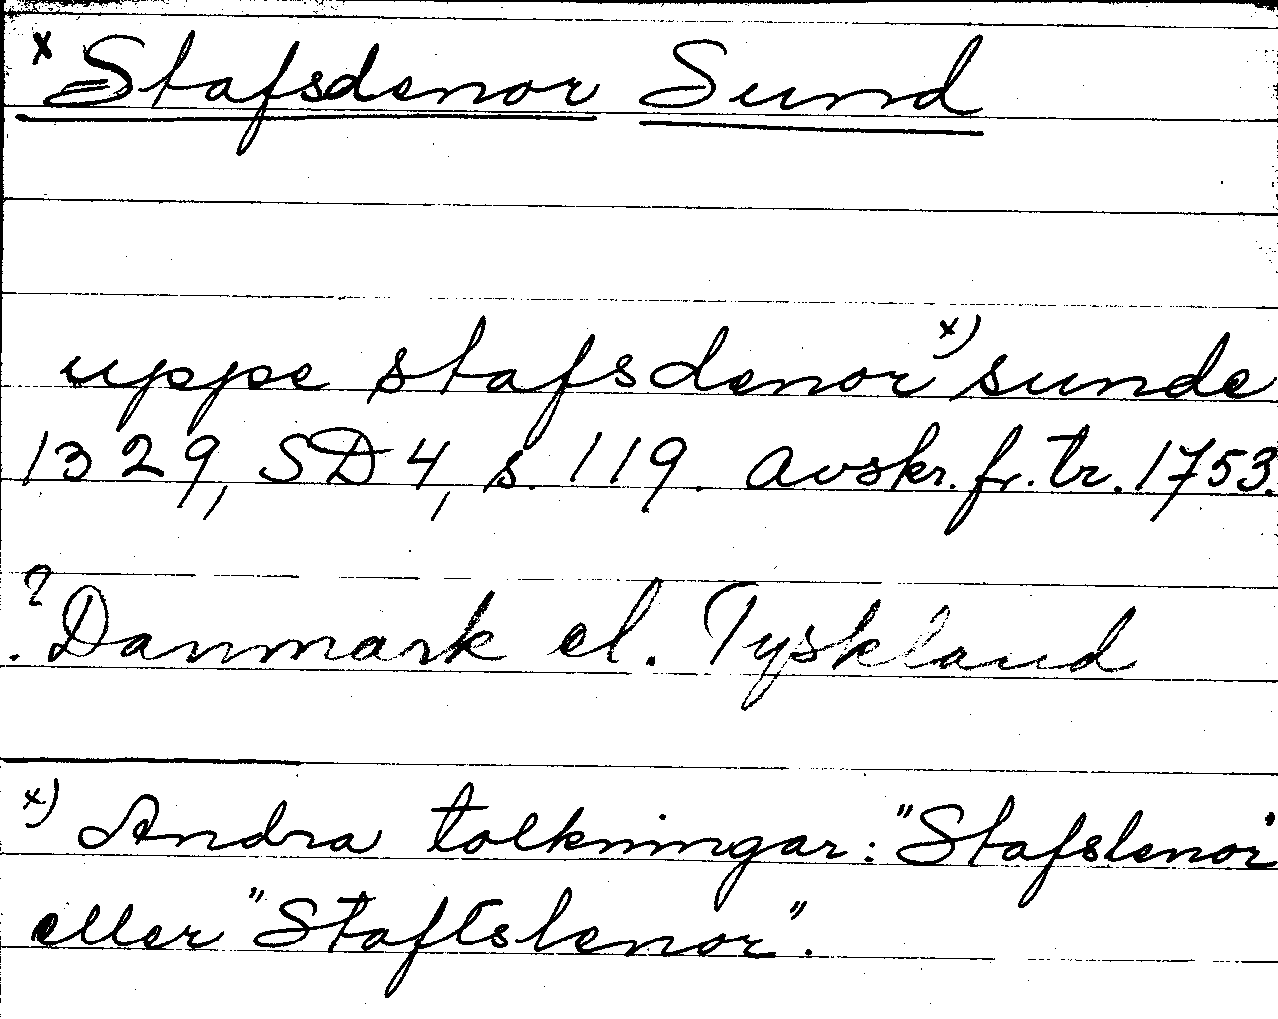 x Stafsdenor Sund
uppe stafsdenor x) sunde
1329, SD 4, s. 119. Avskr. fr. tr. 1753.
? Danmark el. Tyskland
x) Andra tolkningar: "Stafslenor"
eller "Staftslenor".